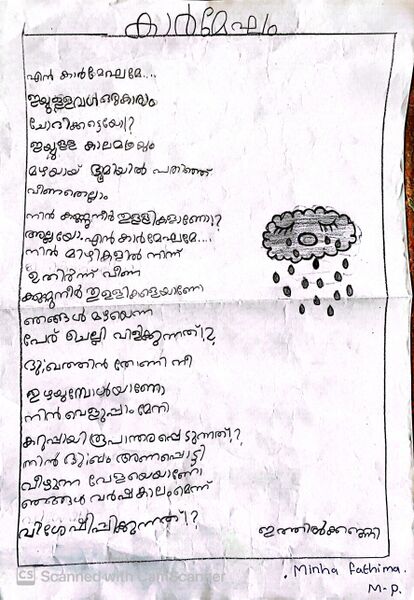 കാർമേഘം
എൻ കാർമേഘമേ....
ഇയ്യുള്ളവൾ ഒരുകാര്യം
ചോദിക്കട്ടെയോ!?
ഇയ്യുള്ള കാലമത്രയും
മഴയായ് ഭൂമിയിൽ പതിഞ്ഞ്
വീണതെല്ലാം
നിൻ കണ്ണുനീർ തുള്ളികളാണോ!?
അല്ലയോ എൻ കാർമേഘമേ....
നിൻ മിഴികളിൽ നിന്ന്
ഉതിർന്ന് വീണ
കണ്ണുനീർ തുള്ളികളെയാണോ
ഞങ്ങൾ മഴയെന്ന
പേര് ചെല്ലി വിളിക്കുന്നത്!?
ദുഃഖത്തിൻ തോണി നീ
തുഴയുമ്പോൾയാണോ
നിൻ വെളുപ്പാം മേനി
കറുപ്പായി രൂപാന്തരപ്പെടുന്നത്!?
നിൻ ദുഃഖം അണപൊട്ടി
വീഴുന്ന വേളയെയാണോ
ഞങ്ങൾ വർഷകാലംമെന്ന്
വിശേഷിപ്പിക്കുന്നത്!?
ഇത്തിൾക്കണ്ണി
. Minha fathima.
M-P.
CS Scanned with CamScanner